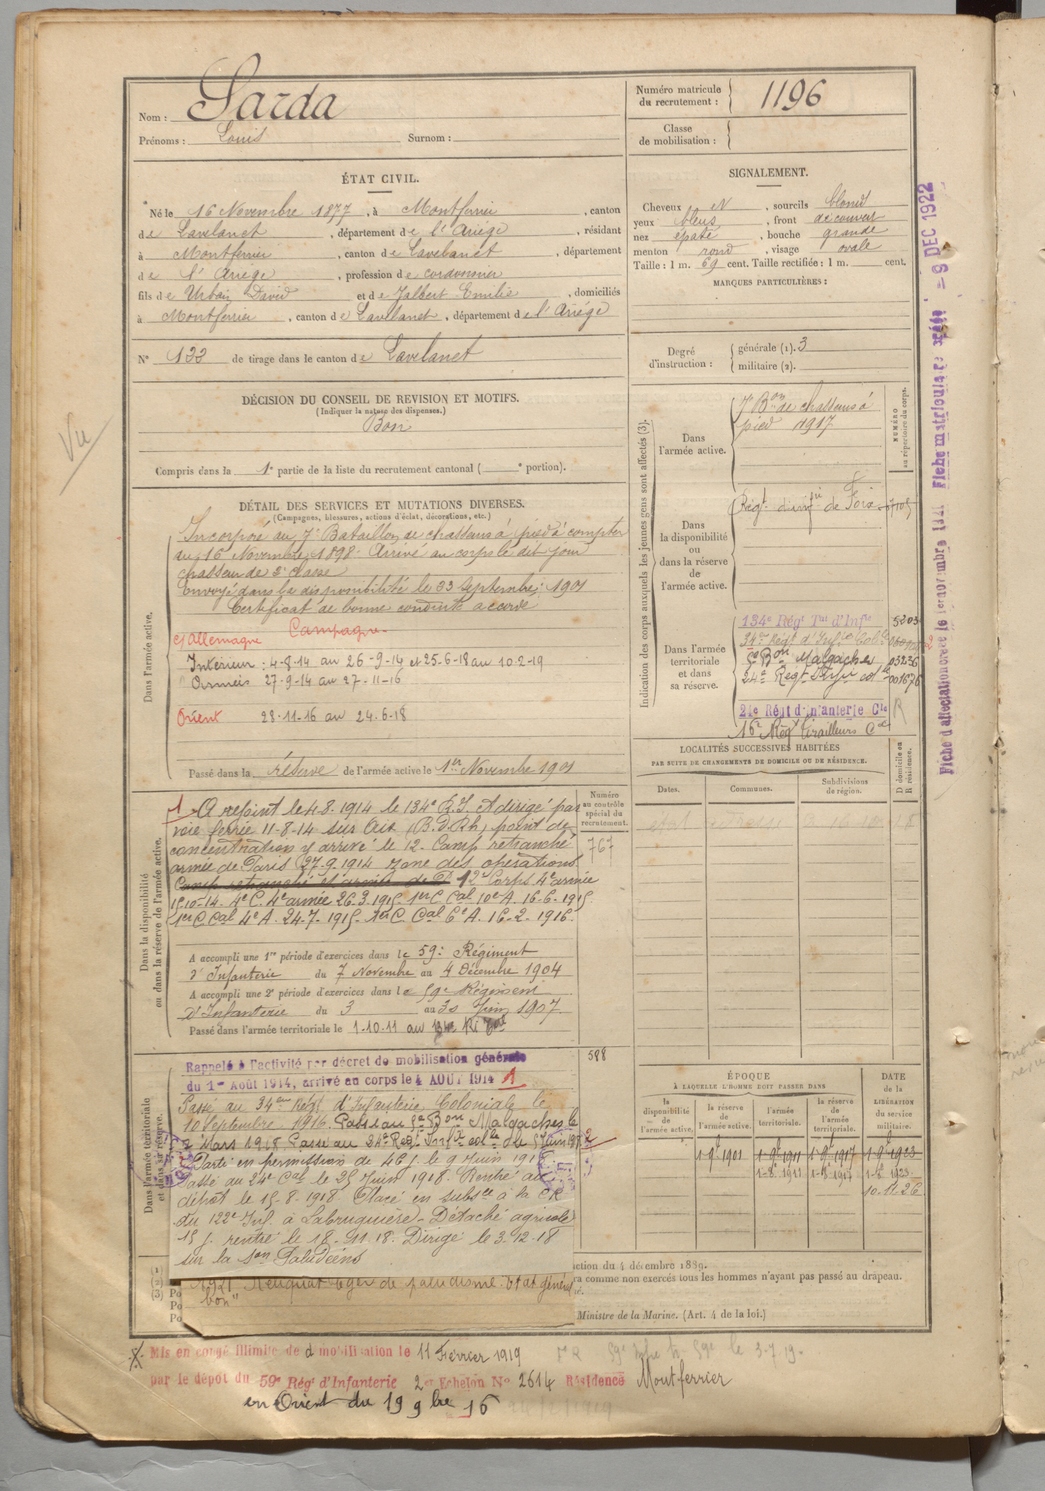 Nom : Sarda
Prénoms : Louis Surnom :
Numéro matricule du recrutement : 1196
Classe de mobilisation :
ÉTAT CIVIL.
Né le 16 Novembre 1877, à Montferrier, canton
de Lavelanet, département de l'Ariège, résidant
à Montferrier, canton de Lavelanet, département
de l'Ariège, profession de cordonnier
fils de Urbain David et de Jalbert Emilie, domiciliés
à Montferrier, canton de Lavelanet, département de l'Ariège
N° 133 de tirage dans le canton de Lavelanet
SIGNALEMENT.
Cheveux N, sourcils blond
yeux bleus, front découvert
nez épaté, bouche grande
menton rond, visage ovale
Taille : 1 m. 69 cent. Taille rectifiée : 1 m. cent.
MARQUES PARTICULIÈRES :
Degré d'instruction : générale (1). 3
militaire (2).
DÉCISION DU CONSEIL DE REVISION ET MOTIFS.
(Indiquer la nature des dispenses.)
Bon
Compris dans la 1e partie de la liste du recrutement cantonal ( e portion).
Vu
DÉTAIL DES SERVICES ET MUTATIONS DIVERSES.
(Campagnes, blessures, actions d'éclat, décorations, etc.)
Dans l'armée active.
Incorporé au 7e Bataillon de chasseurs à pied à compter
du 16 Novembre 1898. Arrivé au corps le dit jour
chasseur de 2e classe
Envoyé dans la disponibilité le 23 Septembre 1901
Certificat de bonne conduite accordé
Campagne
c/ Allemagne
Intérieur : 4-8-14 au 26-9-14 et 25-6-18 au 10-2-19
Armées 27-9-14 au 27-11-16
Orient 28-11-16 au 24-6-18
Passé dans la réserve de l'armée active le 1er Novembre 1901
Dans la disponibilité ou dans la réserve de l'armée active.
1 A rejoint le 4.8.1914 le 134e R.I. et dirigé par
voie ferrée 11-8-14 sur Aix (B.d.Rh) point de
concentration y arrivé le 12. Camp retranché
armée de Paris 27.9.1914 zone des opérations
Camp retranché et armée de P 12e Corps 4e armée
15-10-14. 4e C. 4e armée 26.3.1915 1er C. Cal 10e A. 16-6-1915
1er C. Cal 4e A. 24.7.1915. 1er C. Cal 6e A. 16-2-1916.
A accompli une 1re période d'exercices dans le 59e Régiment
d'Infanterie du 7 Novembre au 4 Décembre 1904
A accompli une 2e période d'exercices dans le 59e Régiment
d'Infanterie du 3 au 30 Juin 1907
Passé dans l'armée territoriale le 1-10-11 au
Numéro au contrôle spécial du recrutement.
767
588
Dans l'armée territoriale et dans sa réserve.
Rappelé à l'activité par décret de mobilisation générale
du 1er Août 1914, arrivé au corps le 4 AOUT 1914 1
Passé au 34eme Régt d'Infanterie Coloniale le
10 Septembre 1916. Passé au 5e Bon Malgaches le
Mars 1918 Passé au 24e Reg. Inf. col. le 5 Juin 1918 2
Parti en permission de 45 j. le 9 Juin 1918
Passé au 24e Cal le 25 Juin 1918. Rentré au
dépôt le 15-8-1918. Placé en subsce à la CR
du 122e Inf. à Labruguière - Détaché agricole
15 j. rentré le 18-11-18. Dirigé le 3-12-18
sur la Son Paludéens
1921. Reliquat léger de paludisme. Etat général
bon"
Indication des corps auxquels les jeunes gens sont affectés (3).
NUMÉRO au répertoire du corps.
Dans l'armée active.
7 Bon de chasseurs à
pied 1917
Dans la disponibilité ou dans la réserve de l'armée active.
Régt d'infrie de Foix
Dans l'armée territoriale et dans sa réserve.
134e Régt Tal d'Infie 5203
34e Régt d'Infie Colle
5e Bon Malgaches 03236
24e Régt d'Inf colle 001676
24e Régt d'Infanterie Cle R
16e Régt Tirailleurs Cal
LOCALITÉS SUCCESSIVES HABITÉES
PAR SUITE DE CHANGEMENTS DE DOMICILE OU DE RÉSIDENCE.
Dates. Communes. Subdivisions de région. D domicile ou R résidence.
ÉPOQUE
À LAQUELLE L'HOMME DOIT PASSER DANS
la disponibilité de l'armée active. la réserve de l'armée active. l'armée territoriale. la réserve de l'armée territoriale.
DATE de la LIBÉRATION du service militaire.
1-9bre 1901 1-9bre 1911 1-9bre 1917 1-9bre 1923
1-8bre 1911 1-8bre 1917 1-8bre 1923
10.11.26
(1)
(2)
(3) Po
Po
Po
ction du 4 décembre 1889.
ra comme non exercés tous les hommes n'ayant pas passé au drapeau.
Ministre de la Marine. (Art. 4 de la loi.)
Mis en congé illimité de démobilisation le 11 Février 1919
par le dépôt du 59e Régt d'Infanterie 2e Echelon No 2614 Résidence Montferrier
en Orient du 19 9bre 16
Fiche matricule 9 DEC 1922